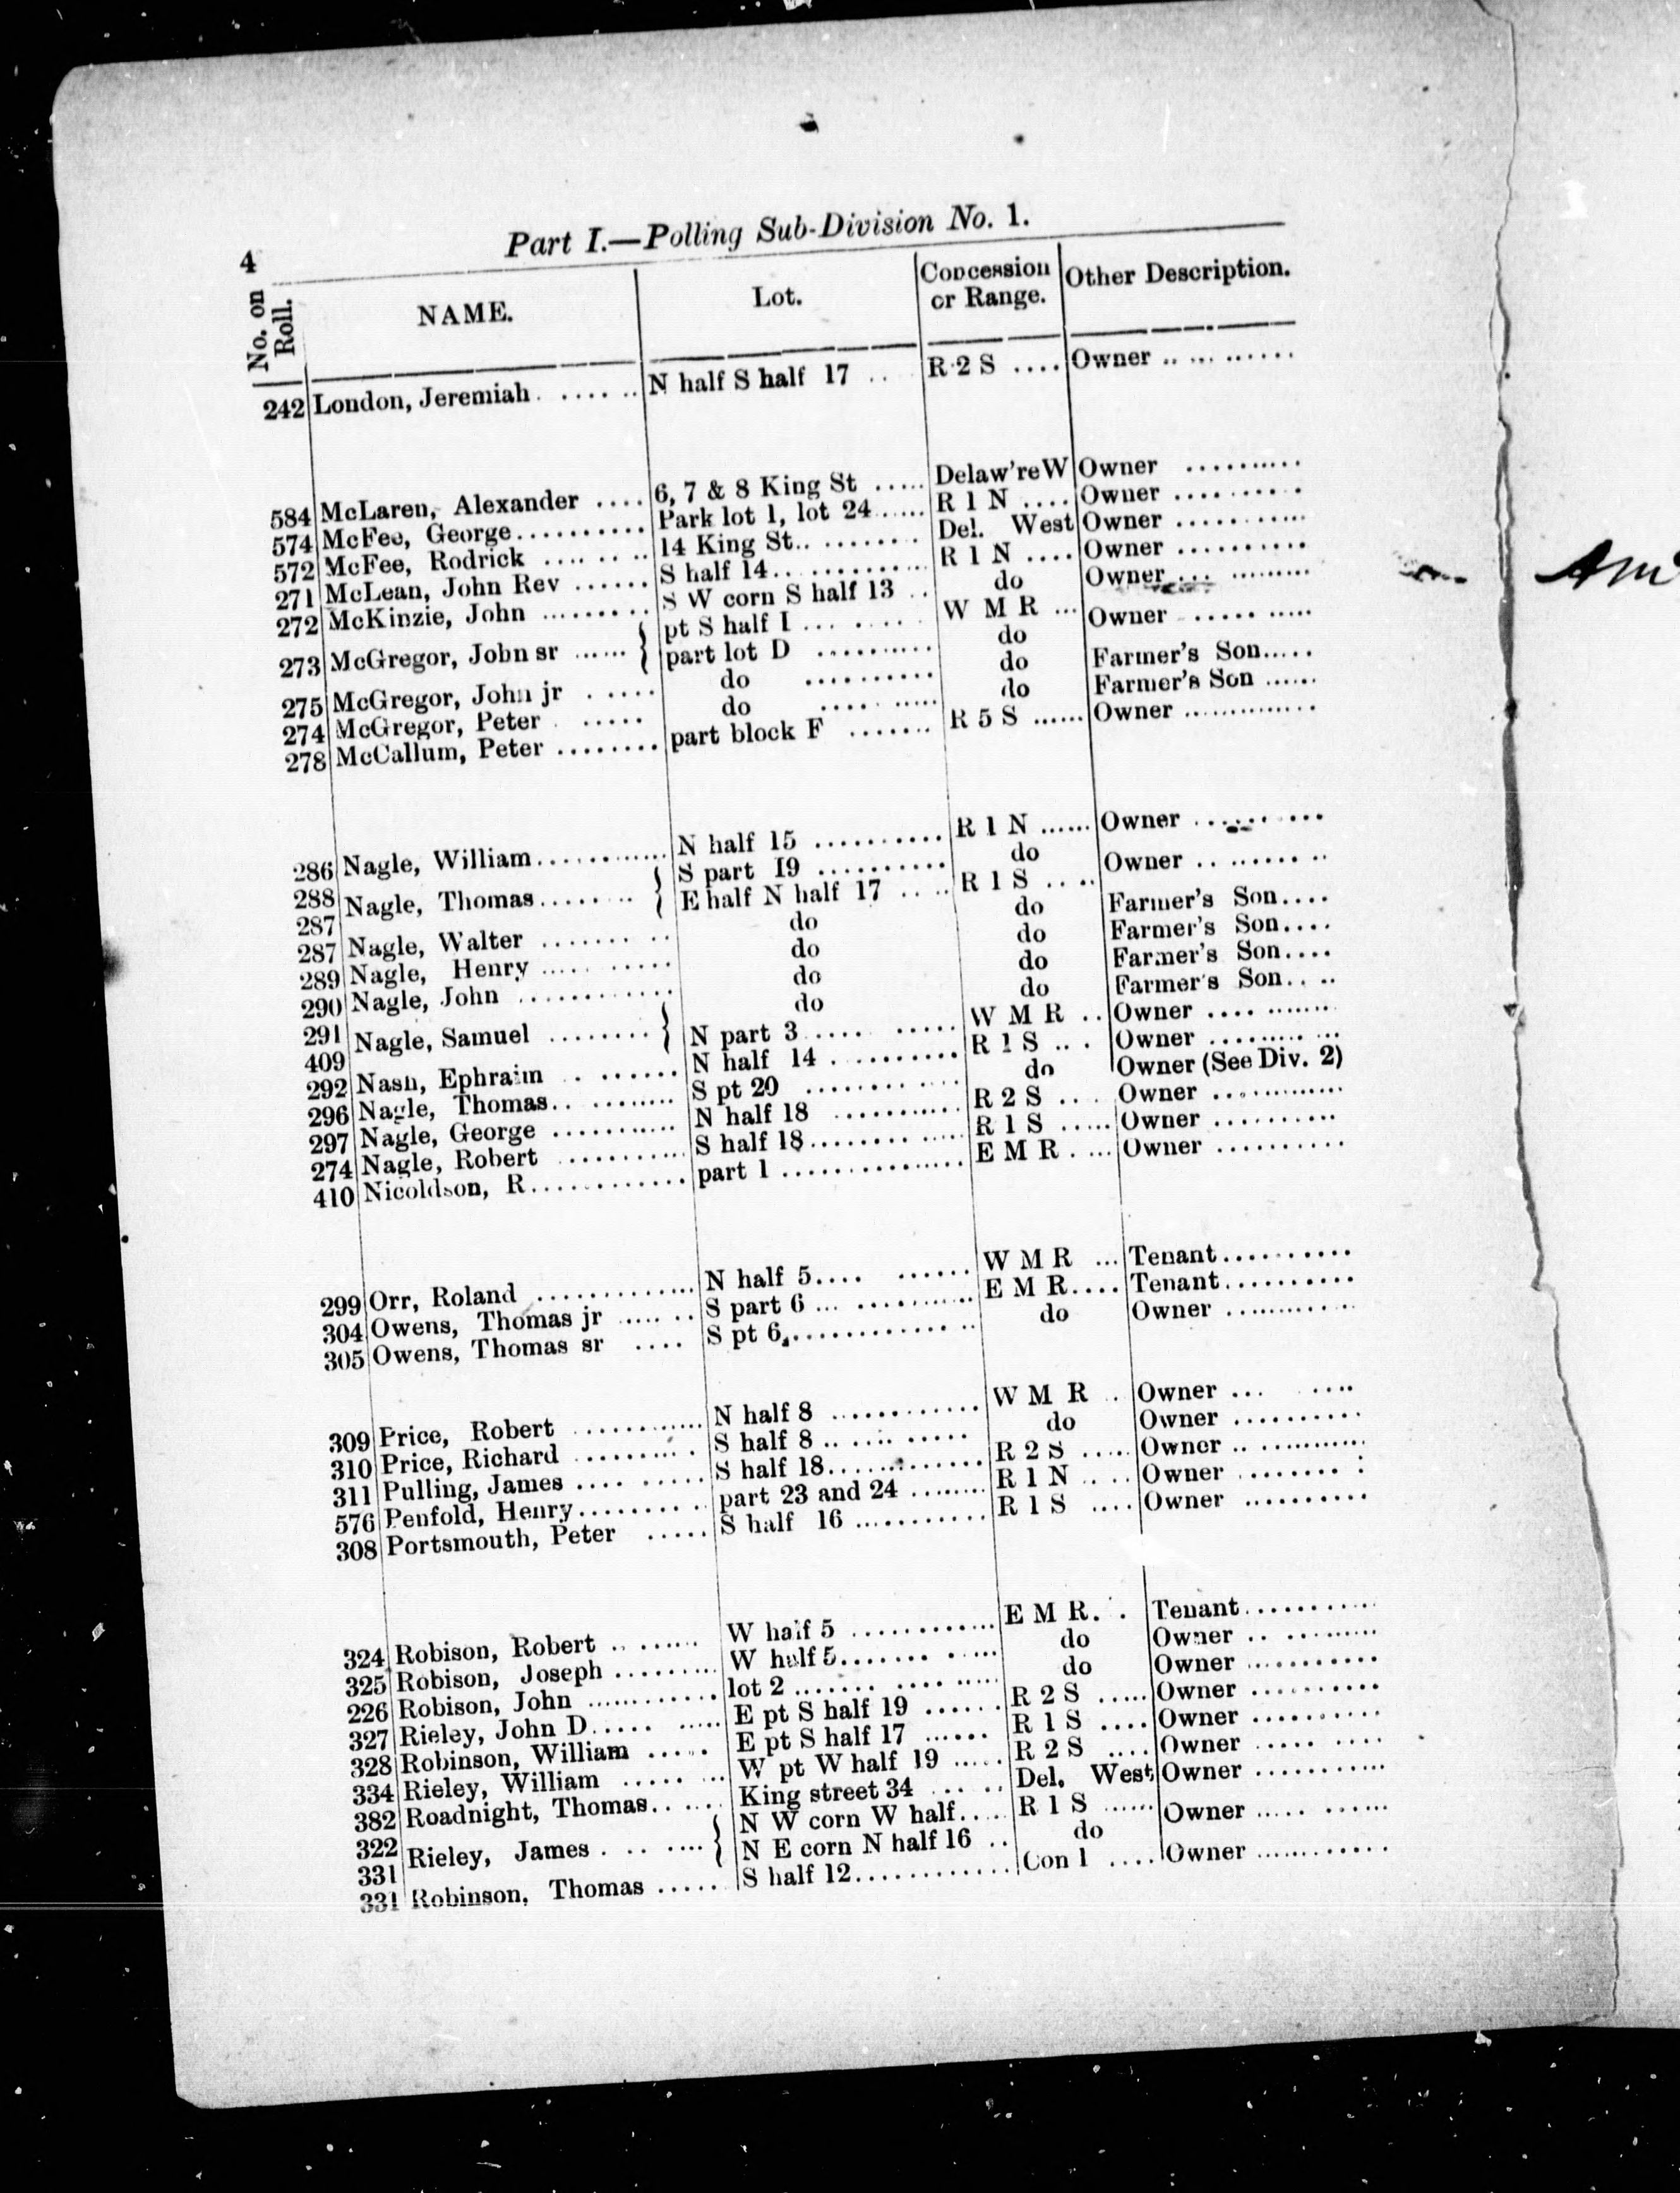 4
Part I.—Polling Sub-Division No. 1.
No. on Roll. NAME. Lot. Concession or Range. Other Description.
242 London, Jeremiah . ...... N half S half 17 .. R 2 S .... Owner .. ... .......
584 McLaren, Alexander .... 6, 7 & 8 King St ..... Delaw're W Owner ..........
574 McFee, George .......... Park lot 1, lot 24 ...... R 1 N .... Owner ..........
572 McFee, Rodrick ..... .. .. 14 King St.. ........ Del. West Owner ...........
271 McLean, John Rev ...... S half 14.. .......... R 1 N .... Owner ..........
272 McKinzie, John ......... S W corn S half 13 .. do Owner ... .........
273 McGregor, John sr ...... { pt S half I ... ...... W M R ... Owner ...... .....
part lot D .......... do
275 McGregor, John jr ..... do .......... do Farmer's Son.....
274 McGregor, Peter . ..... do .... ..... do Farmer's Son ......
278 McCallum, Peter ........ part block F ....... R 5 S ...... Owner ..............
286 Nagle, William............ N half 15 .......... R 1 N ...... Owner ..........
288 Nagle, Thomas........ .. { S part 19 .......... do Owner .. ........
287 E half N half 17 .. .. R 1 S .. ..
287 Nagle, Walter ....... .. do do Farmer's Son....
289 Nagle, Henry ..... ..... do do Farmer's Son....
290 Nagle, John ............ do do Farmer's Son....
291 Nagle, Samuel ......... { do do Farmer's Son.. ..
409 N part 3 ..... ..... W M R .. Owner .... ........
292 Nash, Ephraim .. ....... N half 14 .......... R 1 S .. . Owner ......... ...
296 Nagle, Thomas.. ......... S pt 20 ............ do Owner (See Div. 2)
297 Nagle, George ........... N half 18 ........... R 2 S ... . Owner ............
274 Nagle, Robert ........... S half 18........ ..... R 1 S ..... Owner ..........
410 Nicoldson, R............. part 1 .............. E M R. ... Owner ..........
299 Orr, Roland ............. N half 5.... ...... W M R ... Tenant..........
304 Owens, Thomas jr ..... .. S part 6 ... .......... E M R.... Tenant..........
305 Owens, Thomas sr .... S pt 6............. .. do Owner ...........
309 Price, Robert ............ N half 8 ............ W M R .. Owner ... ....
310 Price, Richard .......... . S half 8 .. ... ..... do Owner ..........
311 Pulling, James .... ...... S half 18.............. R 2 S ..... Owner .. ...........
576 Penfold, Henry......... .. part 23 and 24 ........ R 1 N .. .. Owner ........ :
308 Portsmouth, Peter ..... S half 16 ........... R 1 S .... Owner ..........
324 Robison, Robert .. ...... W half 5 ............ E M R. . . Tenant...........
325 Robison, Joseph ......... W half 5....... . .... do Owner .. .........
226 Robison, John ............ lot 2 ....... .... ..... do Owner ...........
327 Rieley, John D..... ..... E pt S half 19 ...... R 2 S ..... Owner ..........
328 Robinson, William ...... E pt S half 17 ...... R 1 S .... Owner ..........
334 Rieley, William ..... ... W pt W half 19 ..... R 2 S .... Owner ..... ....
382 Roadnight, Thomas.. .... King street 34 . ... .. Del. West Owner ...........
322 Rieley, James . .. .... { N W corn W half..... R 1 S ...... Owner ..... ......
331 N E corn N half 16 .. do
331 Robinson, Thomas ..... S half 12............ Con 1 .... Owner ............